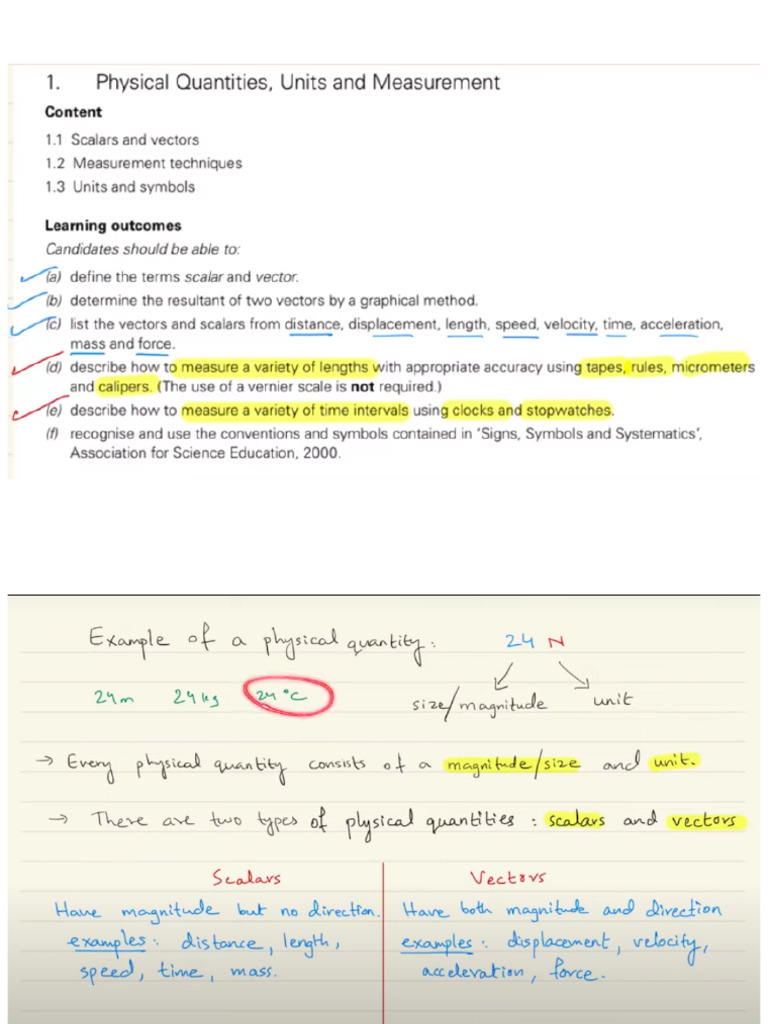 1. Physical Quantities, Units and Measurement
Content
1.1 Scalars and vectors
1.2 Measurement techniques
1.3 Units and symbols
Learning outcomes
Candidates should be able to:
(a) define the terms scalar and vector.
(b) determine the resultant of two vectors by a graphical method.
(c) list the vectors and scalars from distance, displacement, length, speed, velocity, time, acceleration,
mass and force.
(d) describe how to measure a variety of lengths with appropriate accuracy using tapes, rules, micrometers
and calipers. (The use of a vernier scale is not required.)
(e) describe how to measure a variety of time intervals using clocks and stopwatches.
(f) recognise and use the conventions and symbols contained in 'Signs, Symbols and Systematics',
Association for Science Education, 2000.
Example of a physical quantity: 24 N
24m 24kg 24°C size/magnitude unit
→ Every physical quantity consists of a magnitude/size and unit.
→ There are two types of physical quantities : scalars and vectors
Scalars
Have magnitude but no direction.
examples : distance, length,
speed, time, mass.
Vectors
Have both magnitude and direction
examples : displacement, velocity,
acceleration, force.